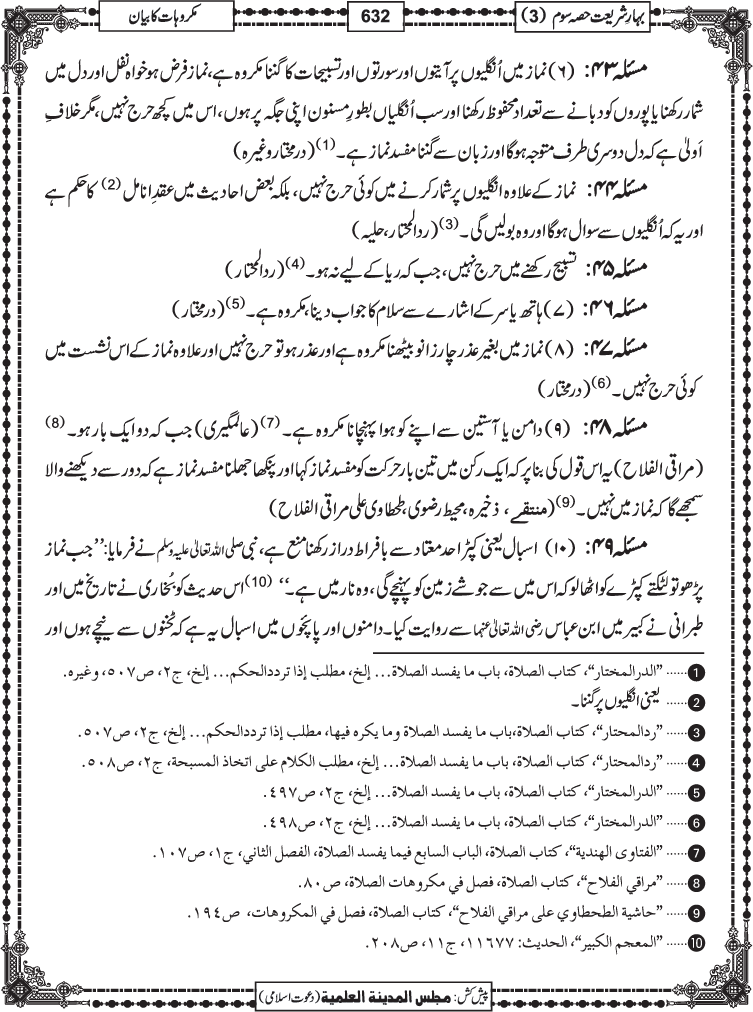 بہارِ شریعت حصہ سوم (3)
632
مکروہات کا بیان
مسئلہ ۴۳: (۶) نماز میں اُنگلیوں پر آیتوں اور سورتوں اور تسبیحات کا گننا مکروہ ہے، نماز فرض ہو خواہ نفل اور دل میں
شمار رکھنا یا پوروں کو دبانے سے تعداد محفوظ رکھنا اور سب اُنگلیاں بطور مسنون اپنی جگہ پر ہوں، اس میں کچھ حرج نہیں، مگر خلافِ
اَولیٰ ہے کہ دل دوسری طرف متوجہ ہوگا اور زبان سے گننا مفسد نماز ہے۔ (1) (درمختار وغیرہ)
مسئلہ ۴۴: نماز کے علاوہ انگلیوں پر شمار کرنے میں کوئی حرج نہیں، بلکہ بعض احادیث میں عقدِ انامل (2) کا حکم ہے
اور یہ کہ اُنگلیوں سے سوال ہوگا اور وہ بولیں گی۔ (3) (ردالمحتار، حلیہ)
مسئلہ ۴۵: تسبیح رکھنے میں حرج نہیں، جب کہ ریا کے لیے نہ ہو۔ (4) (ردالمحتار)
مسئلہ ۴۶: (۷) ہاتھ یا سر کے اشارے سے سلام کا جواب دینا، مکروہ ہے۔ (5) (درمختار)
مسئلہ ۴۷: (۸) نماز میں بغیر عذر چار زانو بیٹھنا مکروہ ہے اور عذر ہو تو حرج نہیں اور علاوہ نماز کے اس نشست میں
کوئی حرج نہیں۔ (6) (درمختار)
مسئلہ ۴۸: (۹) دامن یا آستین سے اپنے کو ہوا پہنچانا مکروہ ہے۔ (7) (عالمگیری) جب کہ دو ایک بار ہو۔ (8)
(مراقی الفلاح) یہ اس قول کی بنا پر کہ ایک رکن میں تین بار حرکت کو مفسد نماز کہا اور پنکھا جھلنا مفسد نماز ہے کہ دور سے دیکھنے والا
سمجھے گا کہ نماز میں نہیں۔ (9) (منتقے، ذخیرہ، محیط رضوی، طحطاوی علی مراقی الفلاح)
مسئلہ ۴۹: (۱۰) اسبال یعنی کپڑا حد معتاد سے بافراط دراز رکھنا منع ہے، نبی صلی اللہ تعالیٰ علیہ وسلم نے فرمایا: ’’جب نماز
پڑھو تو لٹکتے کپڑے کو اٹھا لو کہ اس میں سے جو شے زمین کو پہنچے گی، وہ نار میں ہے۔‘‘ (10) اس حدیث کو بُخاری نے تاریخ میں اور
طبرانی نے کبیر میں ابن عباس رضی اللہ تعالیٰ عنہما سے روایت کیا۔ دامنوں اور پائچوں میں اسبال یہ ہے کہ ٹخنوں سے نیچے ہوں اور
1 ...... ”الدرالمختار“، کتاب الصلاة، باب ما یفسد الصلاة... إلخ، مطلب إذا ترددالحکم... إلخ، ج۲، ص۵۰۷، وغیره.
2 ...... یعنی انگلیوں پر گننا۔
3 ...... ”ردالمحتار“، کتاب الصلاة، باب ما یفسد الصلاة وما یکره فیها، مطلب إذا ترددالحکم... إلخ، ج۲، ص۵۰۷.
4 ...... ”ردالمحتار“، کتاب الصلاة، باب ما یفسد الصلاة... إلخ، مطلب الکلام علی اتخاذ المسبحة، ج۲، ص۵۰۸.
5 ...... ”الدرالمختار“، کتاب الصلاة، باب ما یفسد الصلاة... إلخ، ج۲، ص۴۹۷.
6 ...... ”الدرالمختار“، کتاب الصلاة، باب ما یفسد الصلاة... إلخ، ج۲، ص۴۹۸.
7 ...... ”الفتاوی الهندیة“، کتاب الصلاة، الباب السابع فیما یفسد الصلاة، الفصل الثاني، ج۱، ص۱۰۷.
8 ...... ”مراقي الفلاح“، کتاب الصلاة، فصل في مکروهات الصلاة، ص۸۰.
9 ...... ”حاشیة الطحطاوي علی مراقي الفلاح“، کتاب الصلاة، فصل في المکروهات، ص۱۹۴.
10 ...... ”المعجم الکبیر“، الحدیث: ۱۱۶۷۷، ج۱۱، ص۲۰۸.
پیش کش: مجلس المدینة العلمیة (دعوت اسلامی)